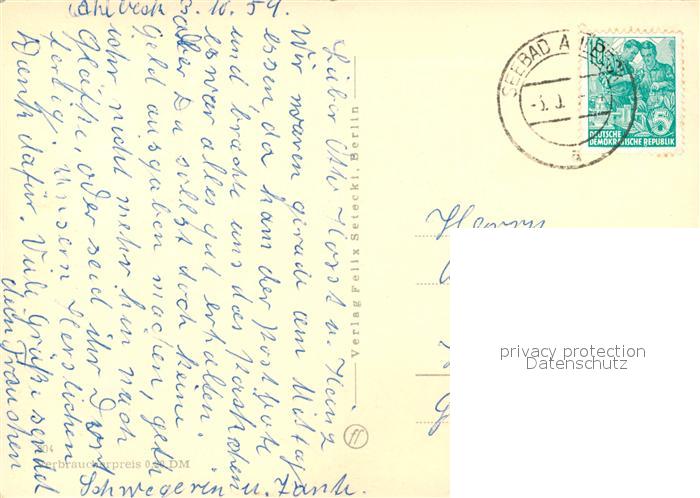 Ahlbeck 3.10.59.
Lieber Otto Horst u. Heinz
Wir waren gerade am Mittag
essen da kam der Postbote
und brachte uns das Päckchen
es war alles gut erhalten.
aber Du sollst doch keine
Geld ausgaben machen, geht
ihr nicht mehr hin nach
oder seid ihr Dort
fertig. Unsern Herzlichen
Dank dafür. Viele Grüße sendet
dein Frauchen
Schwägerin u. Tante.
Verlag Felix Setecki, Berlin
ff
04
Verbraucherpreis 0,20 DM
SEEBAD AHLBECK
a
DEUTSCHE
DEMOKRATISCHE REPUBLIK
5
Herrn
privacy protection
Datenschutz